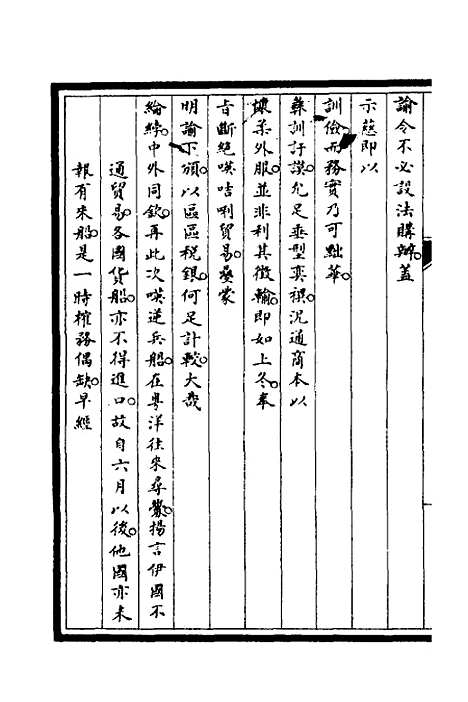 諭令不必設法購辦蓋
示慈即以
訓儉而務實乃可黜華
彝訓訏謨允足垂型奕禩況通商本以
懷柔外服並非利其徵輸即如上冬奉
旨斷絕㗲咭唎貿易疊蒙
明諭下頒以區區稅銀何足計較大哉
綸綍中外同欽再此次㗲逆兵船在粵洋往來尋釁揚言伊國不
通貿易各國貨船亦不得進口故自六月以後他國亦未
報有來船是一時榷務偶缺早經